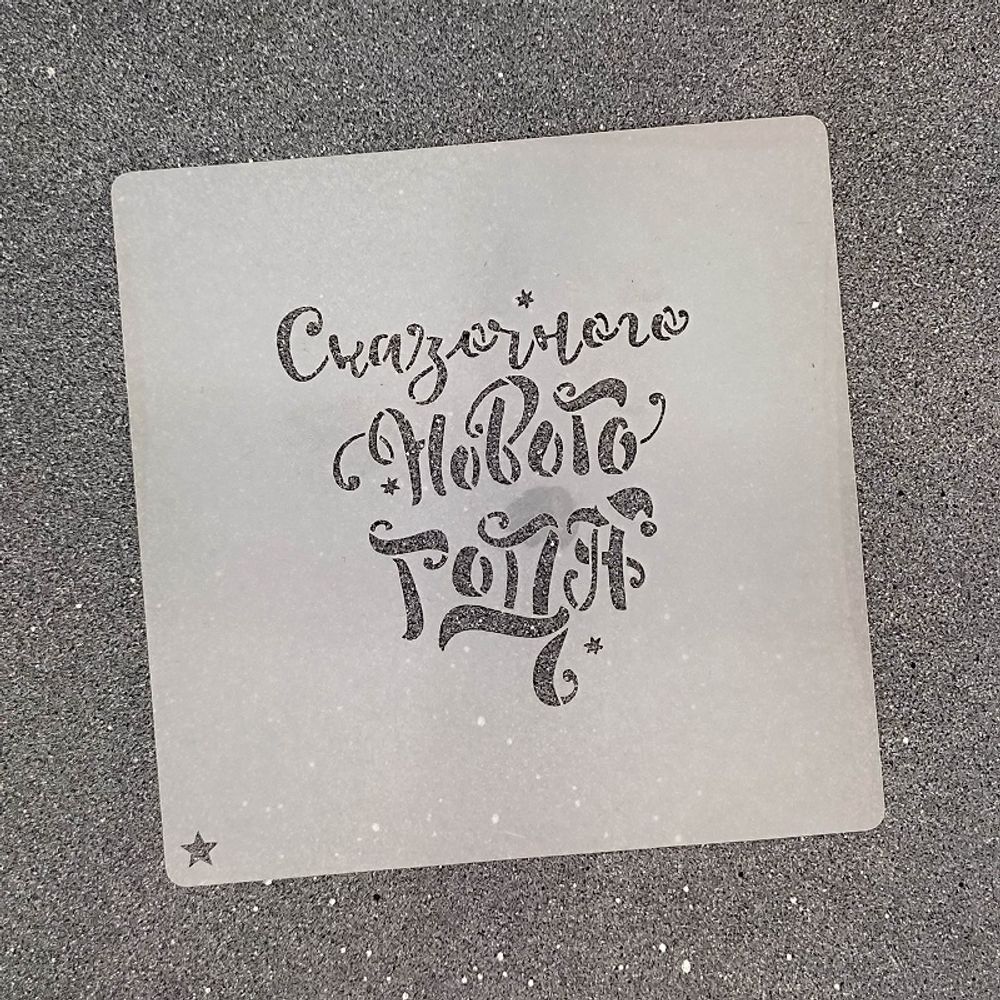 Сказочного
Нового
Года